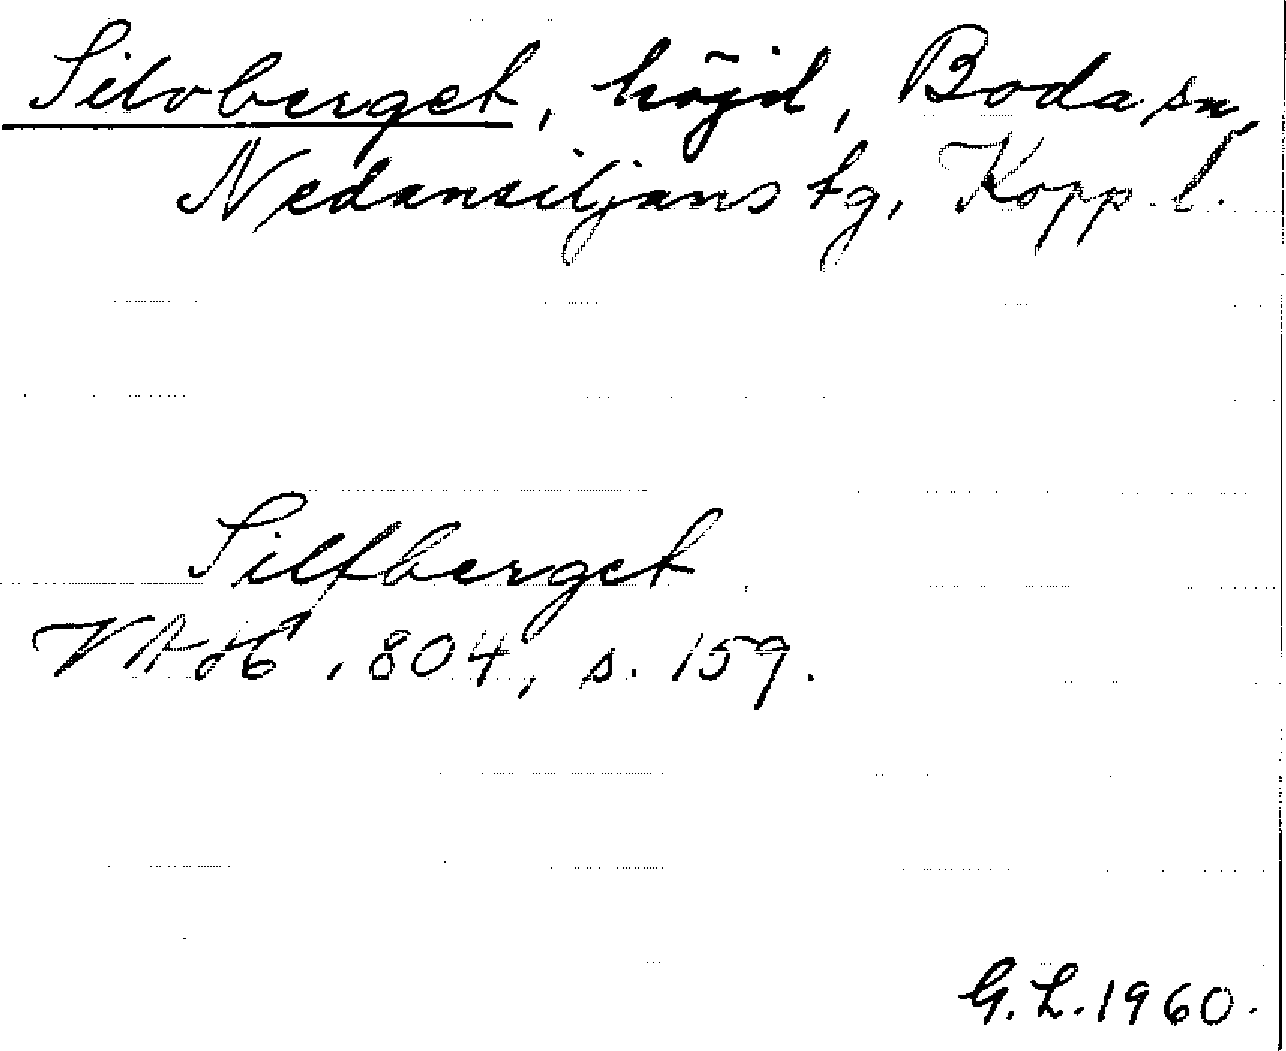 Silvberget, höjd, Boda sn,
Nedansiljans tg, Kopp. l.
Silfberget
VAH 1804, s. 159.
G. L. 1960.